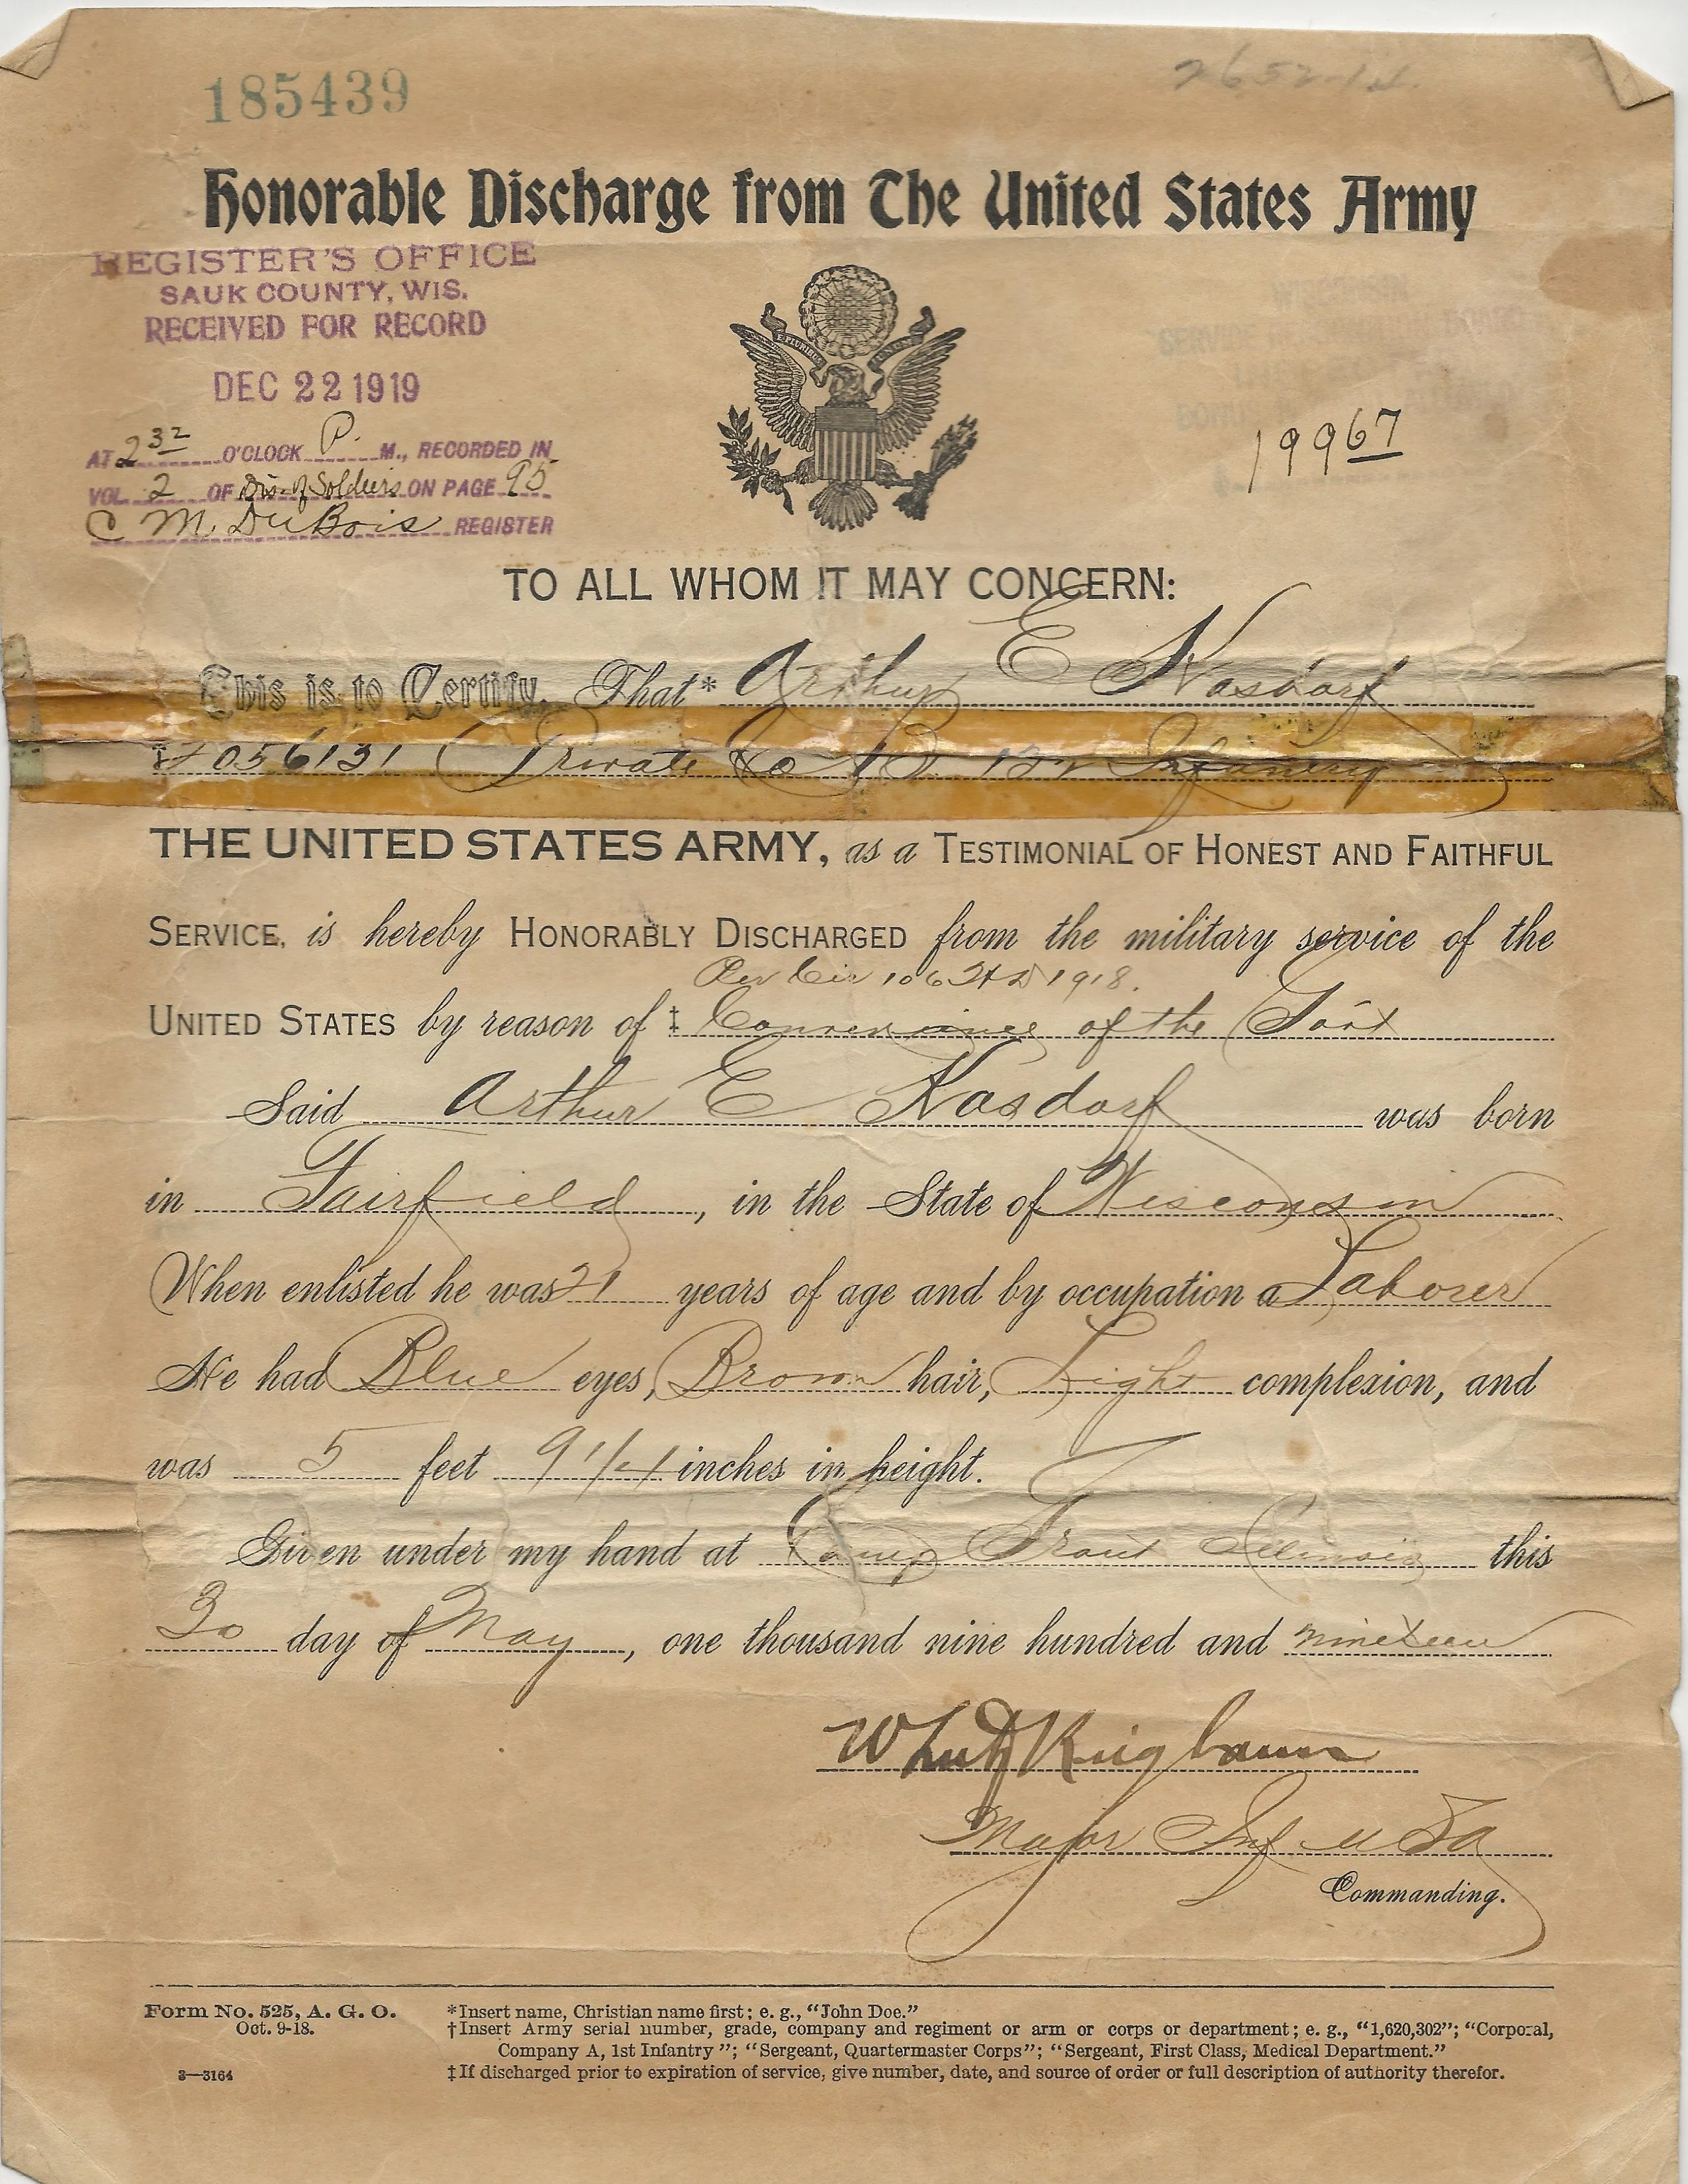 185439
2652-14.
Honorable Discharge from The United States Army
REGISTER'S OFFICE
SAUK COUNTY, WIS.
RECEIVED FOR RECORD
DEC 22 1919
AT 2 32 O'CLOCK P. M., RECORDED IN
VOL. 2 OF Dis. of Soldiers ON PAGE 95
C M. DuBois REGISTER
E PLURIBUS UNUM
19967
TO ALL WHOM IT MAY CONCERN:
This is to Certify, That* Arthur E Kasdorf
† 056131 Private Co B 132 Infantry
THE UNITED STATES ARMY, as a TESTIMONIAL OF HONEST AND FAITHFUL
SERVICE, is hereby HONORABLY DISCHARGED from the military service of the
Per Cir 106 1918.
UNITED STATES by reason of ‡ Convenience of the Govt
Said Arthur E Kasdorf was born
in Fairfield, in the State of Wisconsin
When enlisted he was 21 years of age and by occupation a Laborer
He had Blue eyes, Brown hair, Light complexion, and
was 5 feet 9 1/4 inches in height.
Given under my hand at Camp Grant Illinois this
30 day of May, one thousand nine hundred and nineteen
Major Inf USA
Commanding.
Form No. 525, A. G. O.
Oct. 9-18.
3—3164
*Insert name, Christian name first; e. g., "John Doe."
†Insert Army serial number, grade, company and regiment or arm or corps or department; e. g., "1,620,302"; "Corporal,
Company A, 1st Infantry"; "Sergeant, Quartermaster Corps"; "Sergeant, First Class, Medical Department."
‡If discharged prior to expiration of service, give number, date, and source of order or full description of authority therefor.